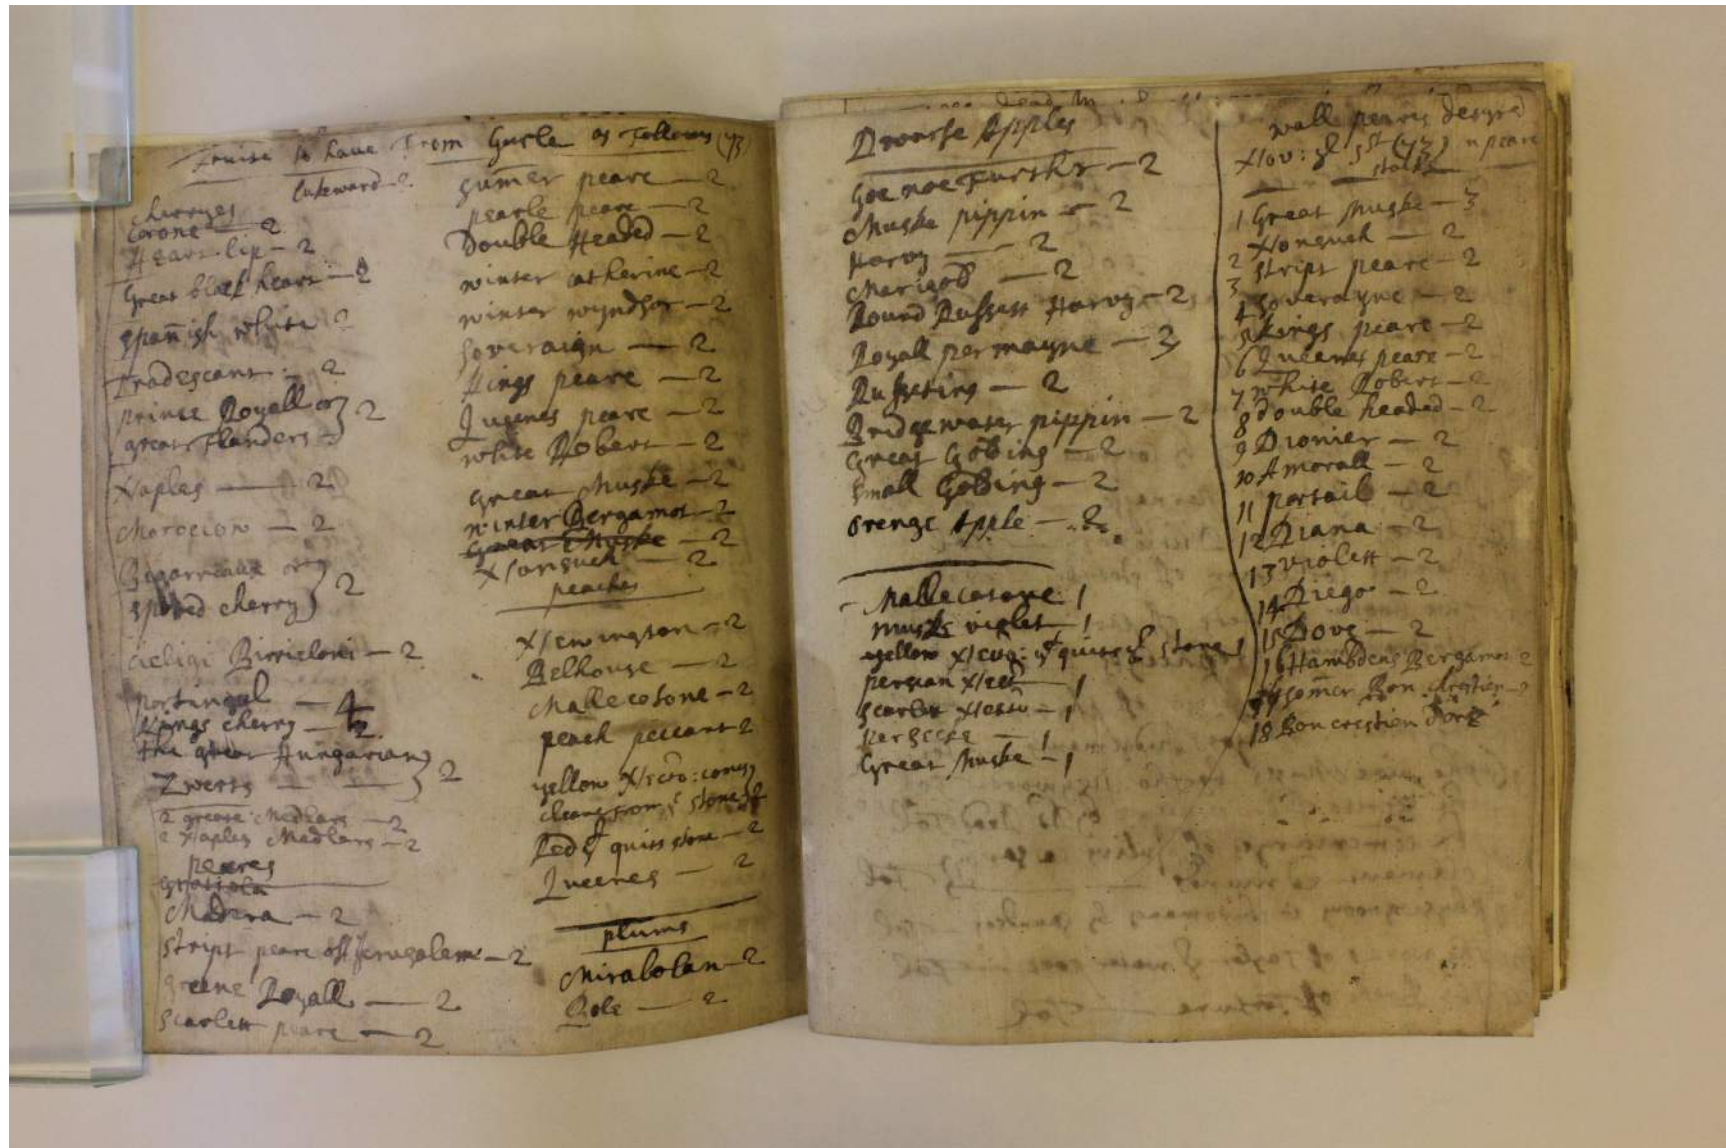 Fruite to have From Gurle as Followes (73)
Lukeward - 2
Cherryes
Corone - 2
Heart lip - 2
Great black heart - 2
Spanish white 2
Tradescant - 2
prince Royall or
great Flanders } 2
Naples - 2
Morocion - 2
Bigarreaux or
spoted cherry } 2
Birricloni - 2
portingal - 4
Kings cherry - 2
the great Hungarian
Zwerts } 2
2 greate Medlars - 2
2 Naples Medlars - 2
peares
Madera - 2
stript peare off Jerusalem - 2
greene Royall - 2
Scarlett peare - 2
sumer peare - 2
pearle peare - 2
Double Headed - 2
winter catherine - 2
winter wyndsor - 2
soveraign - 2
Kings peare - 2
Queenes peare - 2
white Robert - 2
Great Muske - 2
winter Bergamot - 2
Great Muske - 2
Nonsuch - 2
peaches
Newington - 2
Belhouse - 2
Mallecotone - 2
peach peccant 2
yellow Nero: comes
cleane from ye stone } 2
Red yt quits stone - 2
Queenes - 2
plums
Mirabolan - 2
Bole - 2
Dwarfe Apples
Goe noe Further - 2
Muske pippin - 2
Harvy - 2
Marigod - 2
Round Russett Harvy - 2
Royall permayne - 3
Russeting - 2
Bridgewater pippin - 2
Great Gobing - 2
small Gobing - 2
Orenge Apple - 2
Mallecotone 1
muske violet - 1
yellow Nero: yt quits ye stone 1
persian - 1
Scarlet - 1
- 1
Great Muske - 1
wall peares desyrd
Nov: ye 5th (73) n peare
stocks
1 Great Muske - 3
2 Nonsuch - 2
3 stript peare - 2
4 soverayne - 2
5 Kings peare - 2
6 Queenes peare - 2
7 white Robert - 2
8 double headed - 2
9 Dionier - 2
10 Amorall - 2
11 portail - 2
12 Diana - 2
13 violett - 2
14 Diego - 2
15 Dove - 2
16 Hambdens Bergamot 2
somer Bon chrestien - 2
18 Bon crestien